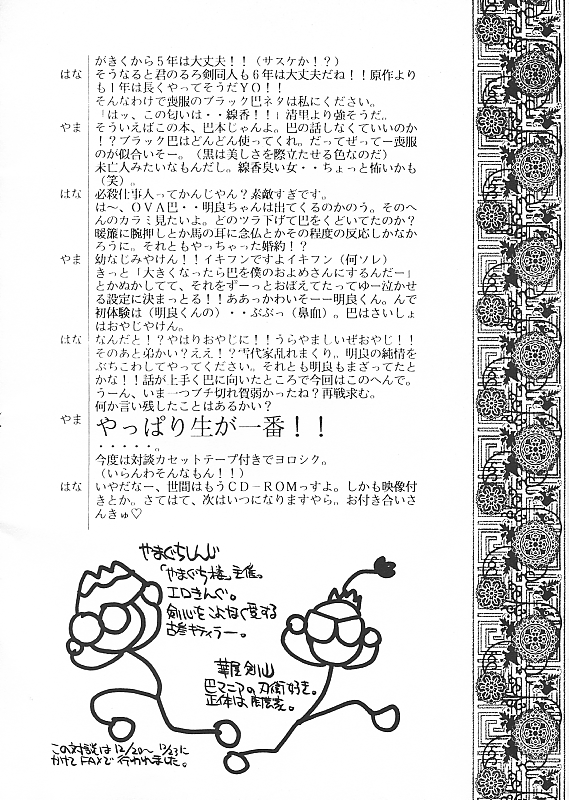 がきくから５年は大丈夫！！（サスケか！？）
はな そうなると君のるろ剣同人も６年は大丈夫だね！！原作より
も１年は長くやってそうだＹＯ！！
そんなわけで喪服のブラック巴ネタは私にください。
「はッ、この匂いは・・線香！！」清里より強そうだ。
やま そういえばこの本、巴本じゃんよ。巴の話しなくていいのか
！？ブラック巴はどんどん使ってくれ。だってぜってー喪服
のが似合いそー。（黒は美しさを際立たせる色なのだ）
未亡人みたいなもんだし。線香臭い女・・ちょっと怖いかも
（笑）。
はな 必殺仕事人ってかんじやん？素敵すぎです。
は〜、ＯＶＡ巴・・明良ちゃんは出てくるのかのう。そのへ
んのカラミ見たいよ。どのツラ下げて巴をくどいてたのか？
暖簾に腕押しとか馬の耳に念仏とかその程度の反応しかなか
ろうに。それともやっちゃった婚約！？
やま 幼なじみやけん！！イキフンですよイキフン（何ソレ）
きっと「大きくなったら巴を僕のおよめさんにするんだー」
とかぬかしてて、それをずーっとおぼえてたってゆー泣かせ
る設定に決まっとる！！ああっかわいそーー明良くん。んで
初体験は（明良くんの）・・ぶぶっ（鼻血）。巴はさいしょ
はおやじやけん。
はな なんだと！？やはりおやじに！！うらやましいぜおやじ！！
そのあと弟かい？ええ！？雪代家乱れまくり。明良の純情を
ぶちこわしてやってください。それとも明良もまざってたと
かな！！話が上手く巴に向いたところで今回はこのへんで。
うーん、いま一つブチ切れ賀弱かったね？再戦求む。
何か言い残したことはあるかい？
やま やっぱり生が一番！！
・・・・・。
今度は対談カセットテープ付きでヨロシク。
（いらんわそんなもん！！）
はな いやだなー、世間はもうＣＤ−ＲＯＭっすよ。しかも映像付
きとか。さてはて、次はいつになりますやら。お付き合いさ
んきゅ♡
やまぐちしんじ
「やまぐち楼」主催。
エロきんぐ。
剣心をこよなく愛する
古参ヤティラー。
華屋剣山
巴マニアの刃衛好き。
正体は
この対談は12/20〜12/23に
かけてFAXで行われました。